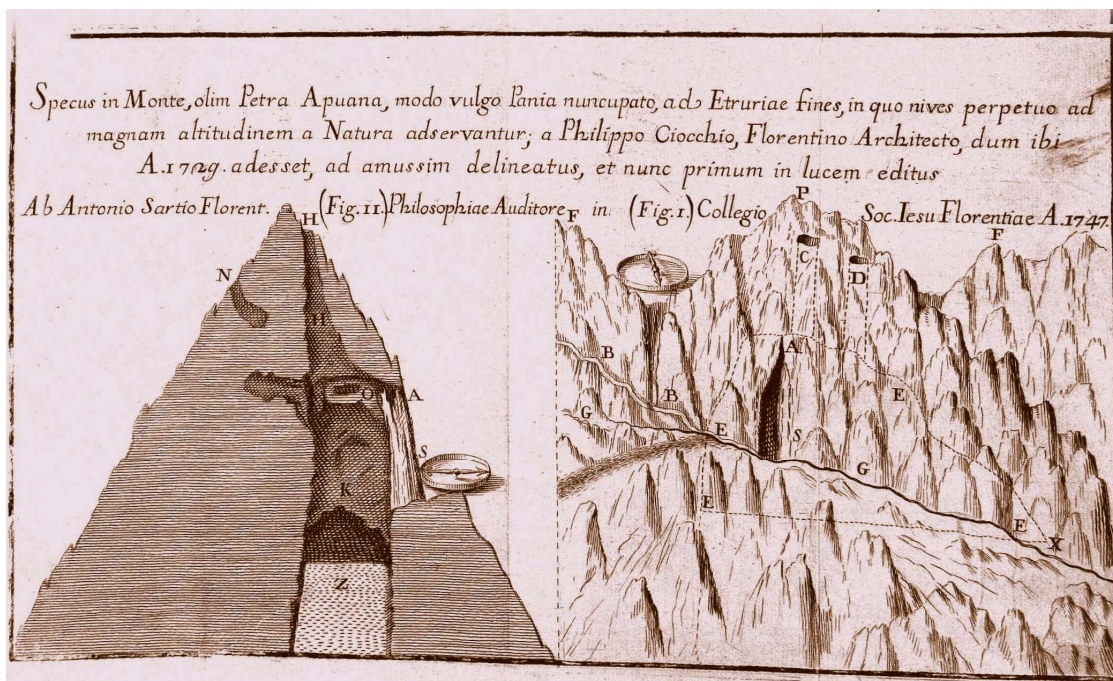 Specus in Monte, olim Petra Apuana, modo vulgo Pania nuncupato, ad Etruriae fines, in quo nives perpetuo ad
magnam altitudinem a Natura adservantur; a Philippo Ciocchio, Florentino Architecto, dum ibi
A.1729. adesset, ad amussim delineatus, et nunc primum in lucem editus
Ab Antonio Sartio Florent. (Fig. II.) Philosophiae Auditore in (Fig. I.) Collegio Soc. Iesu Florentiae A. 1747.
H
N
H
O
A
S
K
Z
F
P
C
D
F
B
A
B
E
G
E
S
G
E
E
X